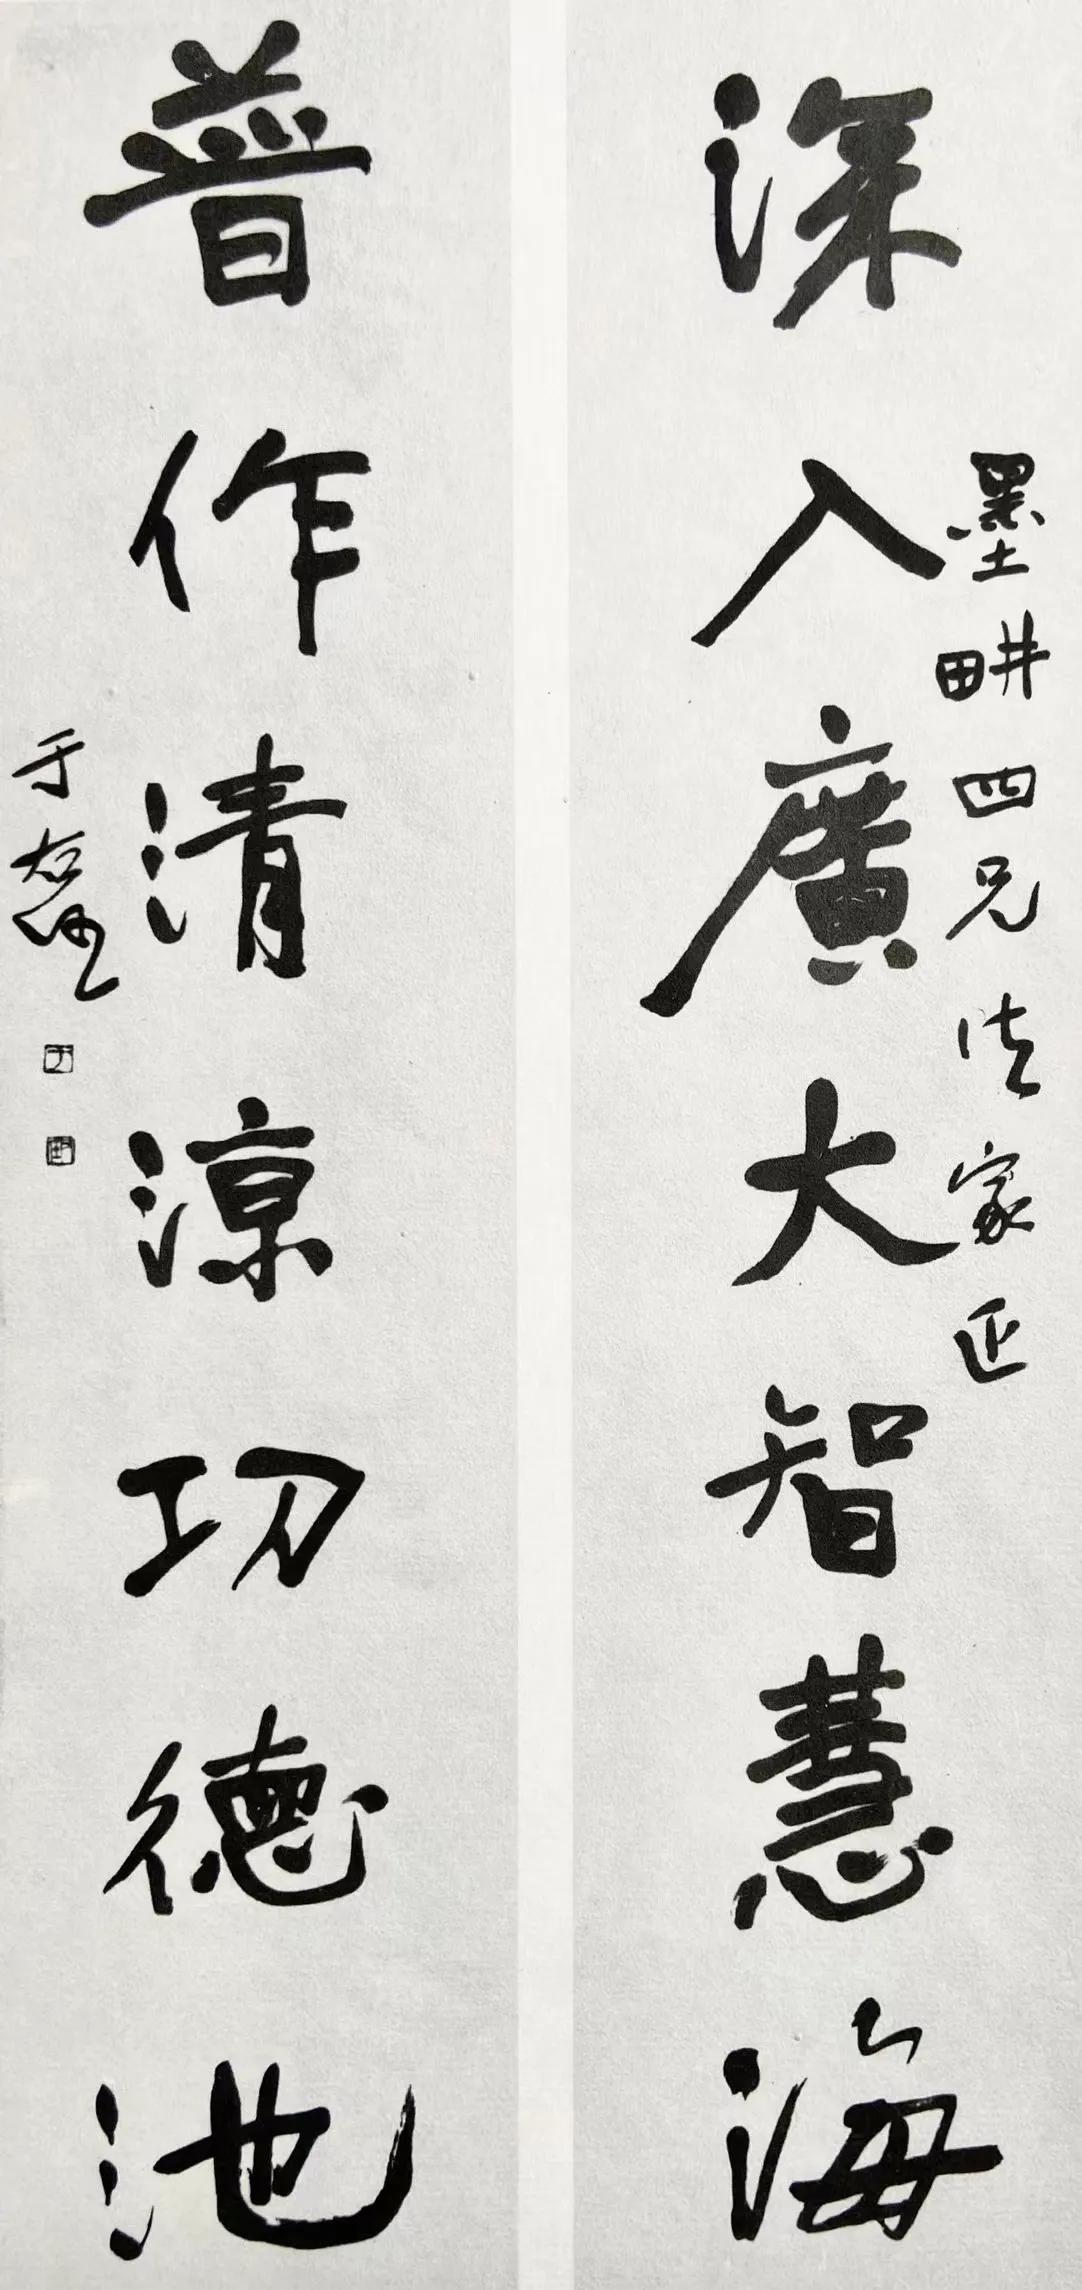 墨畊四兄法家正
深入廣大智慧海
普作清涼功德池
于右任